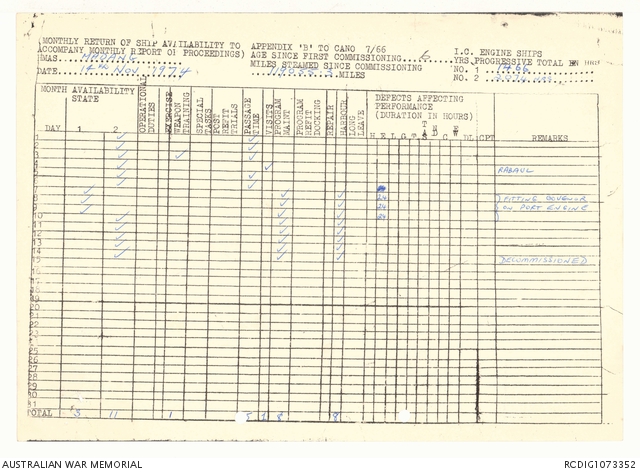 (MONTHLY RETURN OF SHIP AVAILABILITY TO APPENDIX 'B' TO CANO 7/66
ACCOMPANY MONTHLY REPORT OF PROCEEDINGS) AGE SINCE FIRST COMMISSIONING 6 YRS I.C. ENGINE SHIPS
HMAS MADANG MILES STEAMED SINCE COMMISSIONING PROGRESSIVE TOTAL
DATE 14TH NOV 1974 MILES NO. 1
NO. 2
MONTH AVAILABILITY STATE
DAY 1 2
OPERATIONAL DUTIES
EXERCISE WEAPON TRAINING
SPECIAL TASKS
POST REFIT TRIALS
PASSAGE TIME
VISITS
PROGRAM MAINT
PROGRAM REFIT DOCKING
REPAIR
HARBOUR LONG LEAVE
DEFECTS AFFECTING PERFORMANCE (DURATION IN HOURS)
H E L G T S C W DL CPT REMARKS
1 ✓ ✓
2 ✓ ✓
3 ✓ ✓ ✓
4 ✓ ✓
5 ✓ ✓ RABAUL
6 ✓ ✓
7 ✓
8 ✓ ✓ ✓ 24 FITTING GOVENOR
9 ✓ ✓ ✓ 24 ON PORT ENGINE
10 ✓ ✓ ✓ 24
11 ✓ ✓ ✓
12 ✓ ✓ ✓
13 ✓ ✓ ✓
14 ✓ ✓ ✓
15 ✓ ✓ ✓ DECOMMISSIONED
16
17
18
19
20
21
22
23
24
25
26
27
28
29
30
31
TOTAL 3 11 1 5 1 8 8
AUSTRALIAN WAR MEMORIAL RCDIG1073352